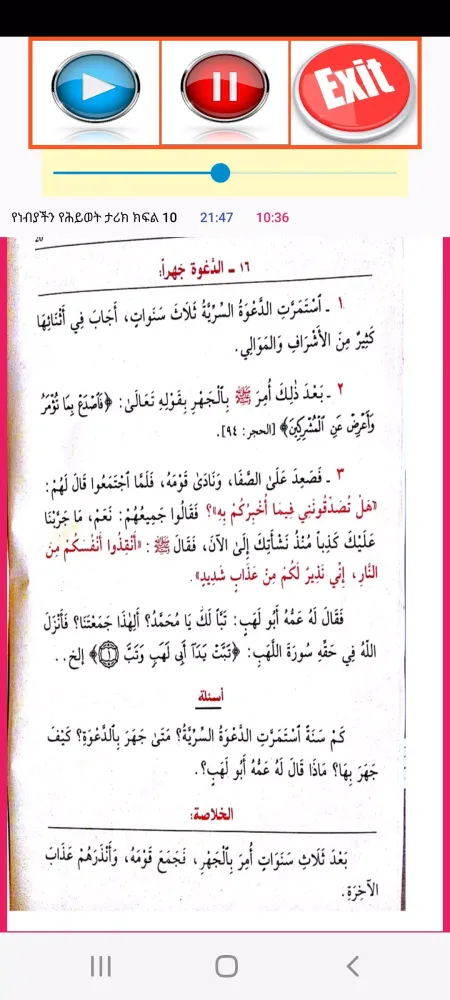 Exit
የነብያችን የሕይወት ታሪክ ክፍል 10 21:47 10:36
٢٥
١٦ - الدَّعْوَةُ جَهْراً:
١ - ٱسْتَمَرَّتِ الدَّعْوَةُ السِّرِّيَّةُ ثَلَاثَ سَنَواتٍ، أَجَابَ فِي أَثْنَائِهَا
كَثِيرٌ مِنَ الأَشْرَافِ وَالمَوَالِي.
٢ - بَعْدَ ذٰلِكَ أُمِرَ ﷺ بِالْجَهْرِ بِقَوْلِهِ تَعَالَىٰ: ﴿فَٱصْدَعْ بِمَا تُؤْمَرُ
وَأَعْرِضْ عَنِ الْمُشْرِكِينَ﴾ [الحجر: ٩٤].
٣ - فَصَعِدَ عَلَىٰ الصَّفَا، وَنَادَىٰ قَوْمَهُ، فَلَمَّا ٱجْتَمَعُوا قَالَ لَهُمْ:
«هَلْ تُصَدِّقُونَنِي فِيمَا أُخْبِرُكُمْ بِهِ»؟ فَقَالُوا جَمِيعُهُمْ: نَعَمْ، مَا جَرَّبْنَا
عَلَيْكَ كَذِباً مُنْذُ نَشْأَتِكَ إِلَىٰ الآنَ، فَقَالَ ﷺ: «أَنْقِذُوا أَنْفُسَكُمْ مِنَ
النَّارِ، إِنِّي نَذِيرٌ لَكُمْ مِنْ عَذَابٍ شَدِيدٍ».
فَقَالَ لَهُ عَمُّهُ أَبُو لَهَبٍ: تَبّاً لَكَ يَا مُحَمَّدُ؟ أَلِهٰذَا جَمَعْتَنَا؟ فَأَنْزَلَ
اللّٰهُ فِي حَقِّهِ سُورَةَ اللَّهَبِ: ﴿تَبَّتْ يَدَآ أَبِى لَهَبٍ وَتَبَّ ۝١﴾ إلخ..
أسئلة
كَمْ سَنَةً ٱسْتَمَرَّتِ الدَّعْوَةُ السِّرِّيَّةُ؟ مَتَىٰ جَهَرَ بِالدَّعْوَةِ؟ كَيْفَ
جَهَرَ بِهَا؟ مَاذَا قَالَ لَهُ عَمُّهُ أَبُو لَهَبٍ؟.
الخلاصة:
بَعْدَ ثَلَاثِ سَنَوَاتٍ أُمِرَ بِالْجَهْرِ، فَجَمَعَ قَوْمَهُ، وَأَنْذَرَهُمْ عَذَابَ
الآخِرَةِ.